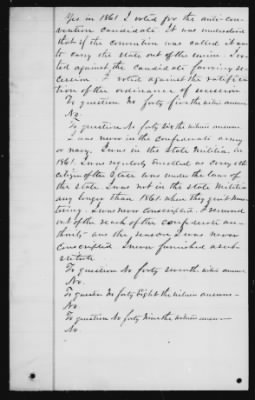 Yes in 1861 I voted for the anti-con-
vention candidate. It was understood
that if the convention was called it was
to carry the state out of the union I vo-
ted against the candidate favoring se-
cession I voted against the ratifica-
tion of the ordinance of secession
To question No forty five the witness answers
No.
To question No forty six the witness answers
I was never in the Confederate army
or navy. I was in the State Militia in
1861. I was regularly enrolled as every other
citizen of the State was under the laws of
the state I was not in the state Militia
any longer than 1861 when they quit Mus-
tering. I was never conscripted. I remained
out of the reach of the confederate au-
thority and the reason I was never
conscripted I never furnished a sub-
stitute
To question No forty seven the witness answers
No.
To question No forty Eight the witness answers
No.
To question No forty Nine the witness answers
No.